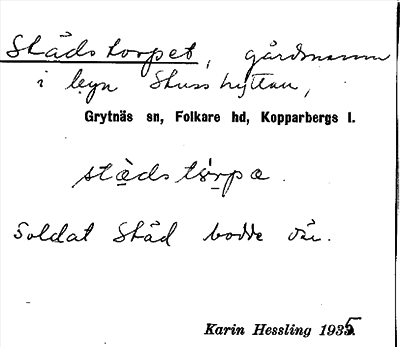 Städstorpet, gårdsnamn
i byn Stusshyttan,
Grytnäs sn, Folkare hd, Kopparbergs l.
Soldat Städ bodde där.
Karin Hessling 1935.